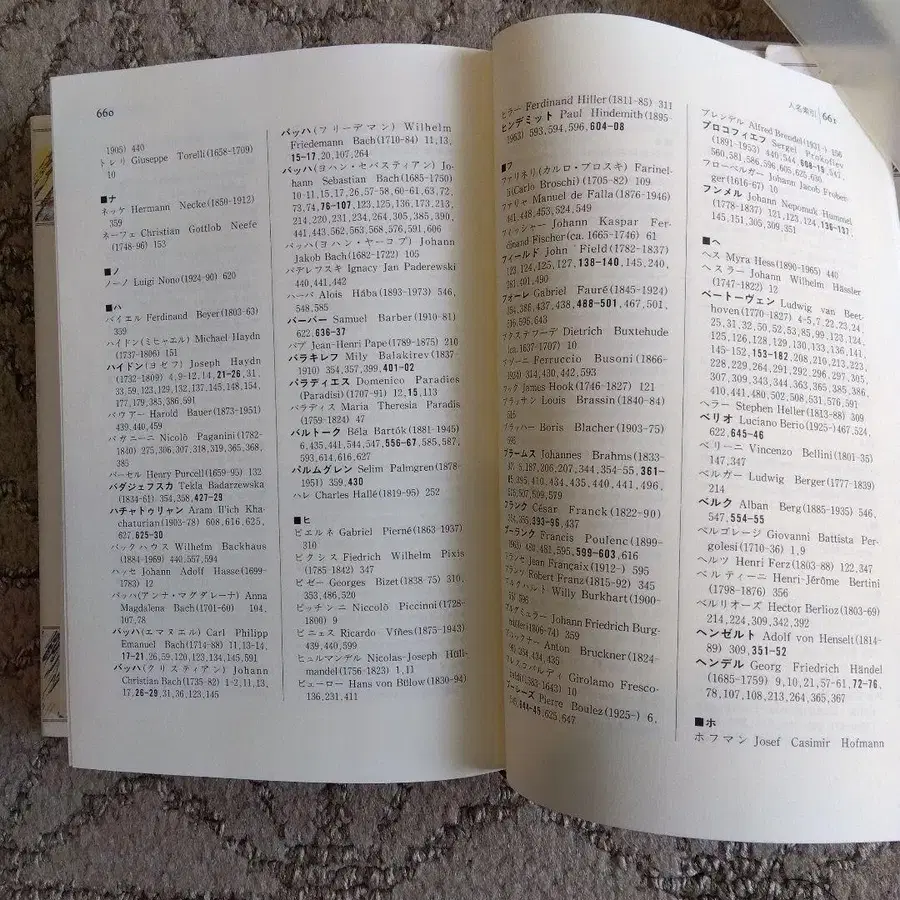 660
1905) 440
トレリ Giuseppe Torelli(1658-1709)
10
■ナ
ネッケ Hermann Necke(1850-1912)
359
ネーフェ Christian Gottlob Neefe
(1748-96) 153
■ノ
ノーノ Luigi Nono(1924-90) 620
■ハ
バイエル Ferdinand Beyer(1803-63)
359
ハイドン(ミヒャエル) Michael Haydn
(1737-1806) 151
ハイドン(ヨゼフ) Joseph Haydn
(1732-1809) 4,9-12,14,21-26,31,
33,59,123,129,132,137,145,148,154,
177,179,385,386,591
バウアー Harold Bauer(1873-1951)
439,440,459
パガニーニ Nicolò Paganini(1782-
1840) 275,306,307,318,319,365,368,
385
パーセル Henry Purcell(1659-95) 132
バダジェフスカ Tekla Badarzewska
(1834-61) 354,358,427-29
ハチャトゥリャン Aram Il'ich Kha-
chaturian(1903-78) 608,616,625,
627,625-30
バックハウス Wilhelm Backhaus
(1884-1969) 440,557,594
ハッセ Johann Adolf Hasse(1699-
1783) 12
バッハ(アンナ・マグダレーナ) Anna
Magdalena Bach(1701-60) 104,
107,78
バッハ(エマヌエル) Carl Philipp
Emanuel Bach(1714-88) 11,13-14,
17-21,26,59,120,123,134,145,591
バッハ(クリスティアン) Johann
Christian Bach(1735-82) 1-2,11,13,
17,26-29,31,36,123,145
バッハ(フリーデマン) Wilhelm
Friedemann Bach(1710-84) 11,13,
15-17,20,107,264
バッハ(ヨハン・セバスティアン) Jo-
hann Sebastian Bach(1685-1750)
10-11,15,17,26,57,58,60-61,63,72,
73,74,75-107,123,125,136,173,213,
214,220,231,234,264,305,385,390,
441,443,562,563,568,576,591,606
バッハ(ヨハン・ヤーコプ) Johann
Jakob Bach(1682-1722) 105
パデレフスキ Ignacy Jan Paderewski
440,441,442
ハーバ Alois Hába(1893-1973) 546,
548,585
バーバー Samuel Barber(1910-81)
622,636-37
パプ Jean-Henri Pape(1789-1875) 210
バラキレフ Mily Balakirev(1837-
1910) 354,357,399,401-02
パラディエス Domenico Paradies
(Paradisi)(1707-91) 12,15,113
パラディス Maria Theresia Paradis
(1759-1824) 47
バルトーク Béla Bartók(1881-1945)
6,435,441,544,547,556-67,585,587,
593,614,616,627
パルムグレン Selim Palmgren(1878-
1951) 359,430
ハレ Charles Hallé(1819-95) 252
■ヒ
ピエルネ Gabriel Pierné(1863-1937)
310
ピクシス Fiedrich Wilhelm Pixis
(1785-1842) 347
ビゼー Georges Bizet(1838-75) 310,
353,486,520
ピッチンニ Niccolò Piccinni(1728-
1800) 9
ビニェス Ricardo Viñes(1875-1943)
439,440,599
ヒュルマンデル Nicolas-Joseph Hüll-
mandel(1756-1823) 1,11
ビューロー Hans von Bülow(1830-94)
136,231,411
人名索引 661
ヒラー Ferdinand Hiller(1811-85) 311
ヒンデミット Paul Hindemith(1895-
1963) 593,594,596,604-08
■フ
ファリネリ(カルロ・ブロスキ) Farinel-
li(Carlo Broschi)(1705-82) 109
ファリャ Manuel de Falla(1876-1946)
441,448,453,524,549
フィッシャー Johann Kaspar Fer-
dinand Fischer(ca. 1665-1746) 61
フィールド John Field(1782-1837)
123,124,125,127,138-140,145,240,
281,401,490
フォーレ Gabriel Fauré(1845-1924)
354,386,437,438,488-501,467,501,
516,596,643
ブクステフーデ Dietrich Buxtehude
(ca.1637-1707) 10
ブゾーニ Ferruccio Busoni(1866-
1923) 314,430,442,593
フック James Hook(1746-1827) 121
ブラッサン Louis Brassin(1840-84)
ブラッハー Boris Blacher(1903-75)
ブラームス Johannes Brahms(1833-
5,187,206,207,344,354-55,361-
395,410,434,435,440,441,496,
515,507,599,579
フランク César Franck(1822-90)
355,393-96,437
プーランク Francis Poulenc(1899-
1963) 480,481,595,599-603,616
フランセ Jean Françaix(1912-) 595
フランツ Robert Franz(1815-92) 345
ブルクハルト Willy Burkhart(1900-
596
ブルグミュラー Johann Friedrich Burg-
müller(1806-74) 359
ブルックナー Anton Bruckner(1824-
354,434,435
フレスコバルディ Girolamo Fresco-
baldi(1583-1643) 10
ブーレーズ Pierre Boulez(1925-) 6,
644-45,625,647
ブレンデル Alfred Brendel(1931-)
プロコフィエフ Sergei Prokofiev
(1891-1953) 440,544,608-19,547,
560,581,586,596,605,625,636
フローベルガー Johann Jacob Frober-
ger(1616-67) 10
フンメル Johann Nepomuk Hummel
(1778-1837) 121,123,124,136-137,
145,151,305,309,351
■ヘ
ヘス Myra Hess(1890-1965) 440
ヘスラー Johann Wilhelm Hässler
(1747-1822) 12
ベートーヴェン Ludwig van Beet-
hoven(1770-1827) 4-5,7,22,23,24,
25,31,32,50,52,53,85,99,123,124,
125,126,128,129,130,133,136,141,
145-152,153-182,208,210,213,223,
228,229,264,291,292,296,305,306,
307,309,343,344,363,365,385,386,
410,441,480,502,508,531,576,591
ヘラー Stephen Heller(1813-88) 309
ベリオ Luciano Berio(1925-) 467,524,
622,645-46
ベリーニ Vincenzo Bellini(1801-35)
147,347
ベルガー Ludwig Berger(1777-1839)
214
ベルク Alban Berg(1885-1935) 546,
547,554-55
ペルゴレージ Giovanni Battista Per-
golesi(1710-36) 1,9
ヘルツ Henri Ferz(1803-88) 122,347
ベルティーニ Henri-Jérôme Bertini
(1798-1876) 356
ベルリオーズ Hector Berlioz(1803-69)
214,224,309,342,392
ヘンゼルト Adolf von Henselt(1814-
89) 309,351-52
ヘンデル Georg Friedrich Händel
(1685-1759) 9,10,21,57-61,72-76,
78,107,108,213,264,365,367
■ホ
ホフマン Josef Casimir Hofmann